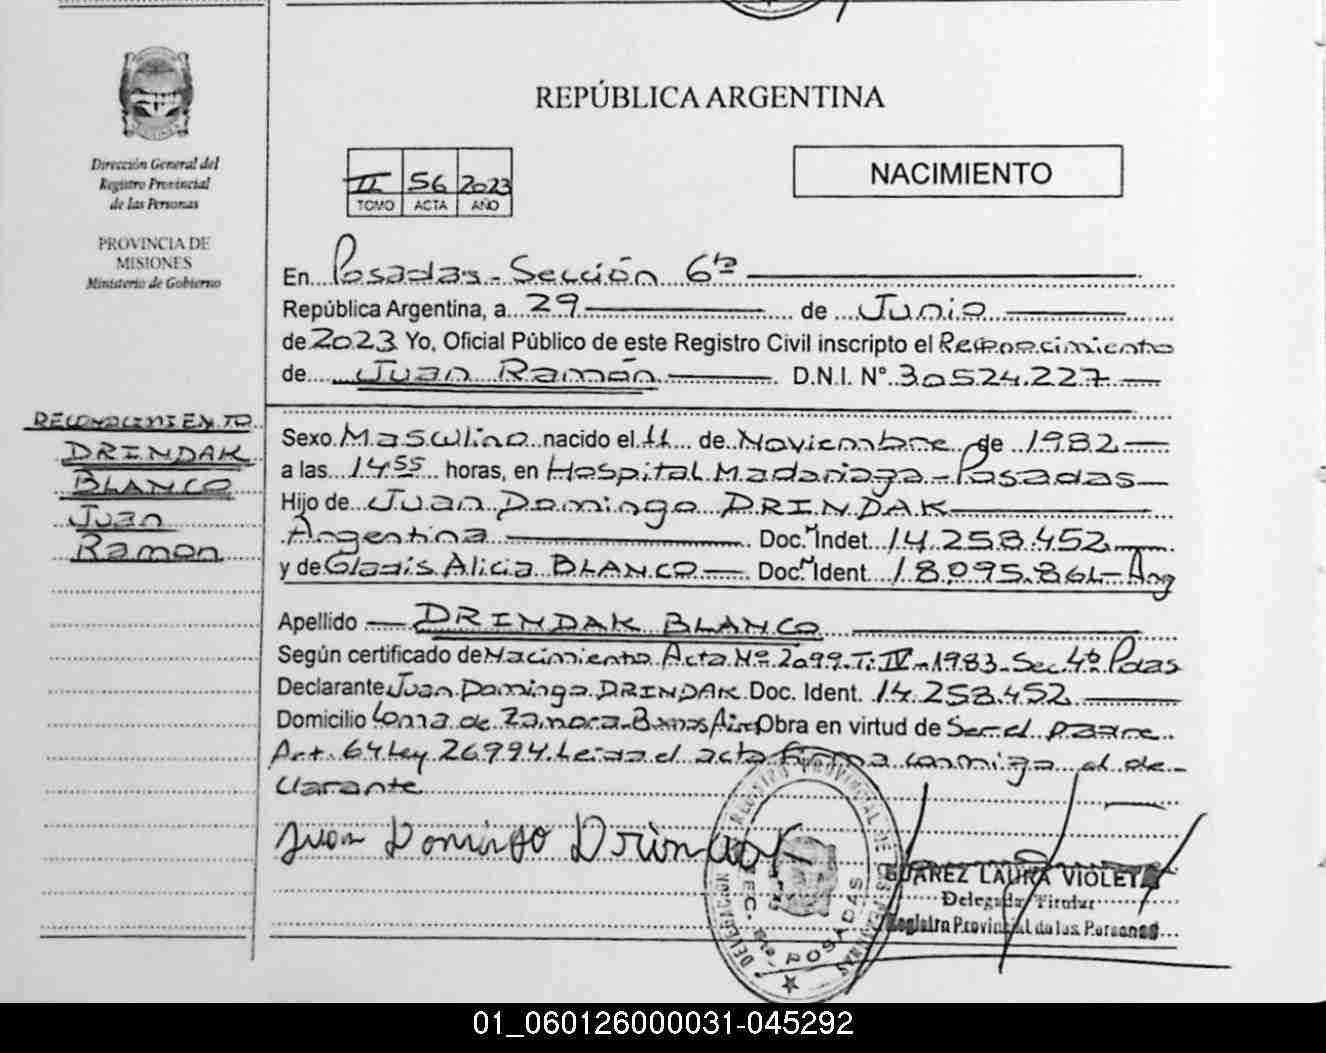 REPÚBLICA ARGENTINA
Dirección General del
Registro Provincial
de las Personas
PROVINCIA DE
MISIONES
Ministerio de Gobierno
II 56 2023
TOMO ACTA AÑO
NACIMIENTO
En Posadas - Sección 6ta
República Argentina, a 29 de Junio
de 2023 Yo, Oficial Público de este Registro Civil inscripto el Reconocimiento
de Juan Ramón D.N.I. N° 30524.227
RECONOCIMIENTO
DRINDAK
BLANCO
Juan
Ramon
Sexo Masculino nacido el 11 de Noviembre de 1982
a las 14:55 horas, en Hospital Madariaga - Posadas
Hijo de Juan Domingo DRINDAK
Argentina Doc. Indet 14.258.452
y de Gladis Alicia BLANCO Doc. Ident. 18.095.861 - Arg
Apellido DRINDAK BLANCO
Según certificado de Nacimiento Acta Nº 2099 T: IV - 1983 - Sec 4ta Pdas
Declarante Juan Domingo DRINDAK Doc. Ident. 14.258.452
Domicilio Loma de Zamora - Buenos Aires Obra en virtud de Ser el padre
Art. 64 Ley 26994. Leida el acta firma conmigo el de-
clarante
Juan Domingo Drindak
DELEGACION REGISTRO PROVINCIAL DE LAS PERSONAS
SEC. 6ta. POSADAS
SUAREZ LAURA VIOLETA
Delegada Titular
Registro Provincial de las Personas
01_060126000031-045292